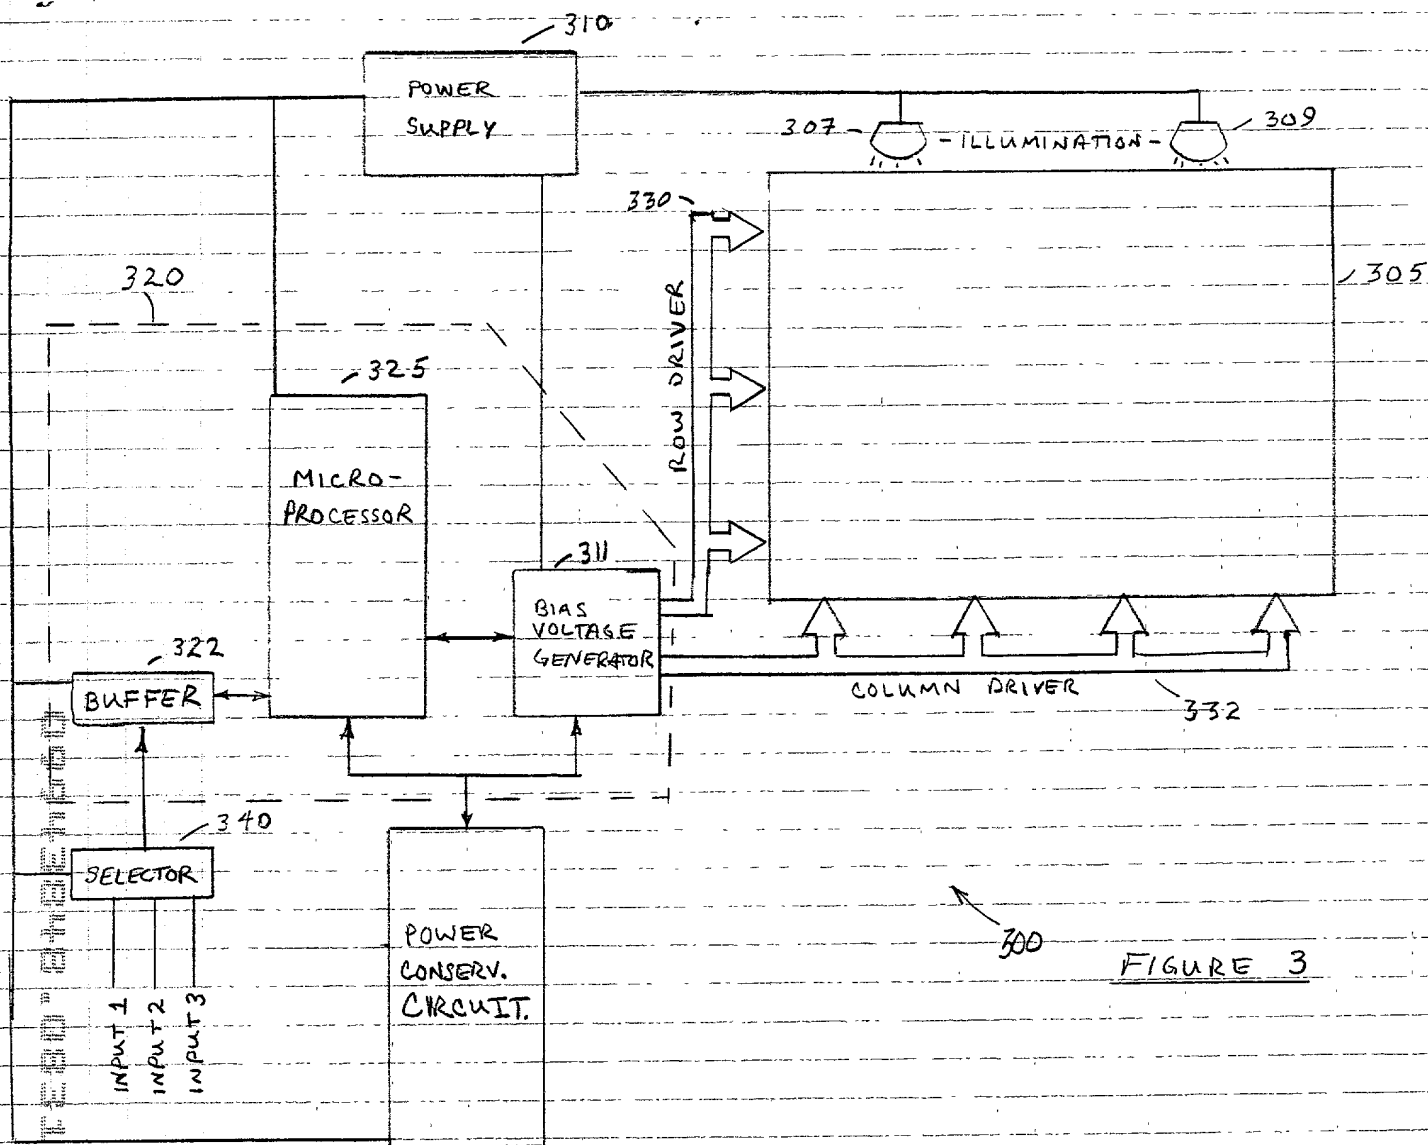 310
POWER
SUPPLY
307
- ILLUMINATION -
309
330
320
305
ROW DRIVER
325
MICRO-
PROCESSOR
311
BIAS
VOLTAGE
GENERATOR
322
BUFFER
COLUMN DRIVER
332
340
SELECTOR
POWER
CONSERV.
CIRCUIT.
300
FIGURE 3
INPUT 1
INPUT 2
INPUT 3